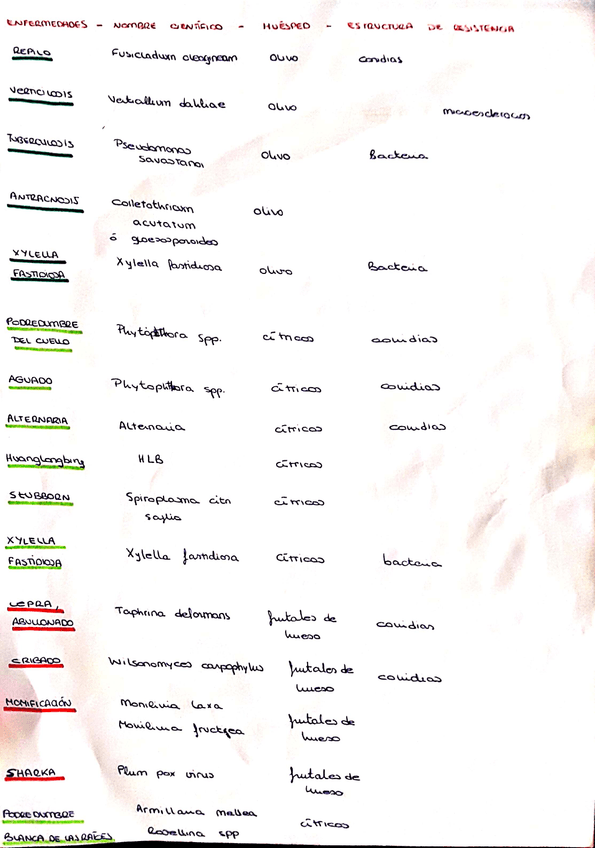 ENFERMEDADES - NOMBRE CIENTÍFICO - HUÉSPED - ESTRUCTURA DE RESISTENCIA
REPILO Fusicladium oleagineum OLIVO conidias
VERTICILOSIS Verticillium dahliae OLIVO microesclerocios
TUBERCULOSIS Pseudomonas savastanoi OLIVO Bacteria
ANTRACNOSIS Colletothricum olivo
acutatum
ó gloeosporoides
XYLELLA FASTIDIOSA Xylella fastidiosa olivo Bacteria
PODREDUMBRE DEL CUELLO Phytophthora spp. cítricos conidias
AGUADO Phytophthora spp. cítricos conidias
ALTERNARIA Alternaria cítricos conidias
Huanglongbing HLB cítricos
STUBBORN Spiroplasma citri cítricos
XYLELLA FASTIDIOSA Xylella fastidiosa cítricos bacteria
LEPRA, ABULLONADO Taphrina deformans frutales de hueso conidias
CRIBADO Wilsonomyces carpophylus frutales de hueso conidias
MOMIFICACIÓN Monilinia laxa
Monilinia fructigea frutales de hueso
SHARKA Plum pox virus frutales de hueso
PODREDUMBRE Armillaria mellea cítricos
BLANCA DE LAS RAÍCES Rosellina spp